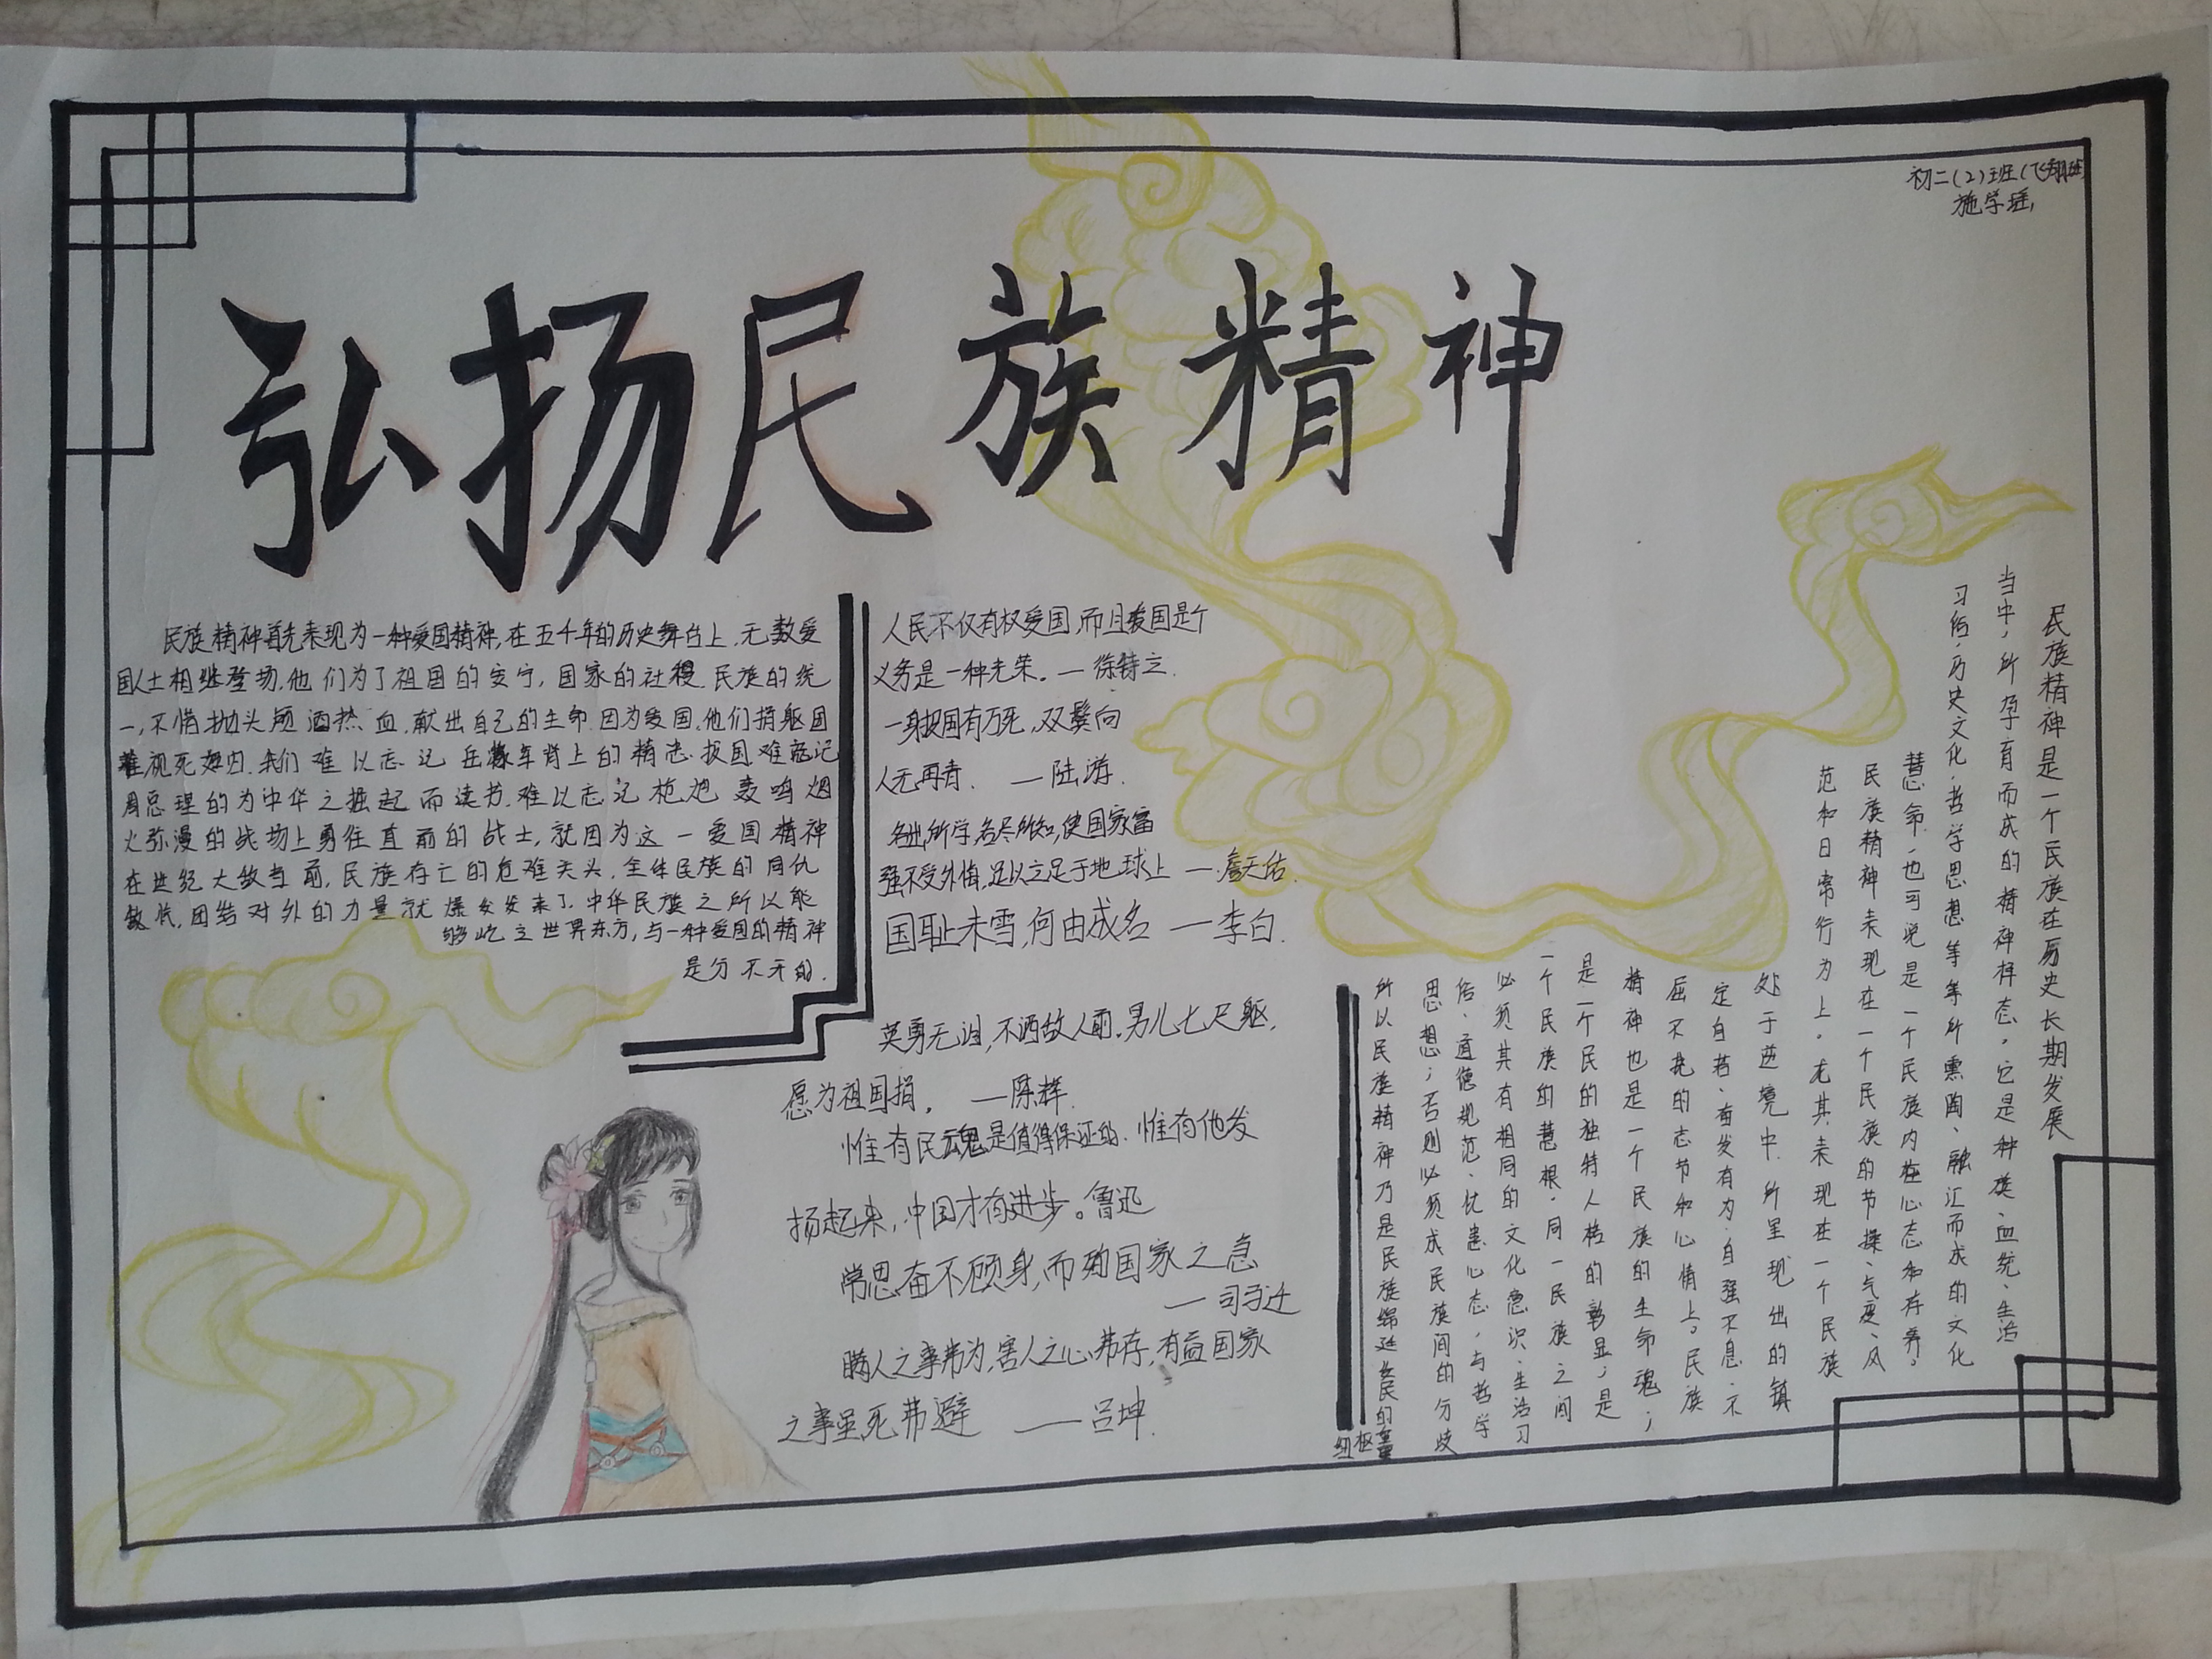 初二(2)班(飞翔班)
施学瑶
弘扬民族精神
民族精神首先表现为一种爱国精神,在五千年的历史舞台上,无数爱
国人士相继登场,他们为了祖国的安宁,国家的社稷,民族的统
一,不惜抛头颅洒热血,献出自己的生命.因为爱国,他们捐躯国
难视死如归.我们难以忘记岳家军背上的精忠报国难忘记
周总理的为中华之掘起而读书.难以忘记枪炮轰鸣烟
火弥漫的战场上勇往直前的战士,就因为这一爱国精神
在世纪大敌当前,民族存亡的危难关头,全体民族的同仇
敌忾,团结对外的力量就爆发发来了.中华民族之所以能
够屹立世界东方,与一种爱国的精神
是分不开的.
人民不仅有权爱国,而且爱国是个
义务是一种光荣。—徐特立.
一身报国有万死,双鬓向
人无再青. —陆游.
各出所学,各尽所知,使国家富
强不受外侮,足以立足于地球上 —詹天佑.
国耻未雪,何由成名 —李白.
英勇无泪,不洒敌人前.男儿七尺躯,
愿为祖国捐. —陈辉.
惟有民魂是值得保证的.惟有他发
扬起来,中国才有进步。鲁迅
常思奋不顾身,而殉国家之急
—司马迁
瞒人之事弗为,害人之心弗存,有益国家
之事虽死弗避 ——吕坤.
民族精神是一个民族在历史长期发展
当中,所孕育而成的精神样态。它是种族、血统、生活
习俗,历史文化,哲学思想等等所熏陶、融汇而成的文化
慧命,也可说是一个民族内在心态和存养。
民族精神表现在一个民族的节操、气度、风
范和日常行为上。尤其表现在一个民族
处于逆境中.所呈现出的镇
定自若、奋发有为.自强不息.不
屈不挠的志节和心情上。民族
精神也是一个民族的生命魂;
是一个民的独特人格的彰显;是
一个民族的慧根.同一民族之间
必须其有相同的文化意识.生活习
俗、道德规范、忧患心态,与哲学
思想;否则必须成民族间的分歧
所以民族精神乃是民族绵延发民的重
纽枢